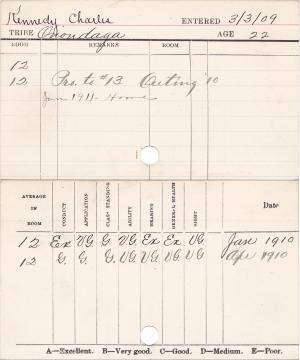 Kennedy Charlie ENTERED 3/3/09
TRIBE Onondaga AGE 22
ROOM REMARKS ROOM
12
12 Pro. to #13 Outing '10
Jan 1911 - Home
AVERAGE IN ROOM CONDUCT APPLICATION CLASS STANDING ABILITY HEARING GENERAL HEALTH SIGHT Date
12 Ex VG. G. VG. Ex Ex VG Jan 1910
12 G. G. G. VG VG VG VG Apr 1910
A—Excellent. B—Very good. C—Good. D—Medium. E—Poor.